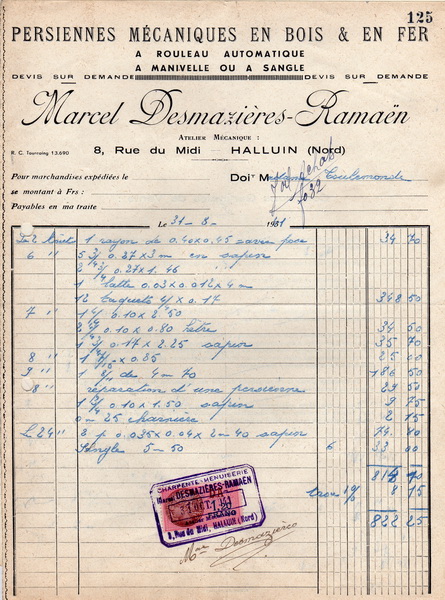 125
PERSIENNES MÉCANIQUES EN BOIS & EN FER
A ROULEAU AUTOMATIQUE
A MANIVELLE OU A SANGLE
DEVIS SUR DEMANDE DEVIS SUR DEMANDE
Marcel Desmazières-Ramaën
ATELIER MÉCANIQUE :
R. C. Tourcoing 13.690
8, Rue du Midi — HALLUIN (Nord)
Pour marchandises expédiées le
Doit M Toulemonde
se montant à Frs :
Payables en ma traite
Le 31-8-1951
Le 2 Août 1 rayon de 0.40 x 0.45 avec pose 34 70
6 " 5 0.27 x 3 m en sapin
2 0.27 x 1.46
1 latte 0.03 x 0.012 x 4 m
12 taquets x 0.17 348 50
7 " 1 0.10 x 2 50
2 0.10 x 0.80 hêtre 34 50
1 0.17 x 2.25 sapin 35 70
8 " x 0.35 25 00
9 " 1 de 4-70 186 50
8 " réparation d'une persienne 29 50
1 0.10 x 1.50 sapin 9 75
0-25 charnière 2 15
Le 24 " 2 p 0.035 x 0.04 x 2-40 sapin 74 40
Sangles 5-50 6 33 00
40
taxe 1% 8 15
822 25
CHARPENTE - MENUISERIE
Marcel DESMAZIÈRES-RAMAËN
8, Rue du Midi, HALLUIN (Nord)
Mme Desmazières